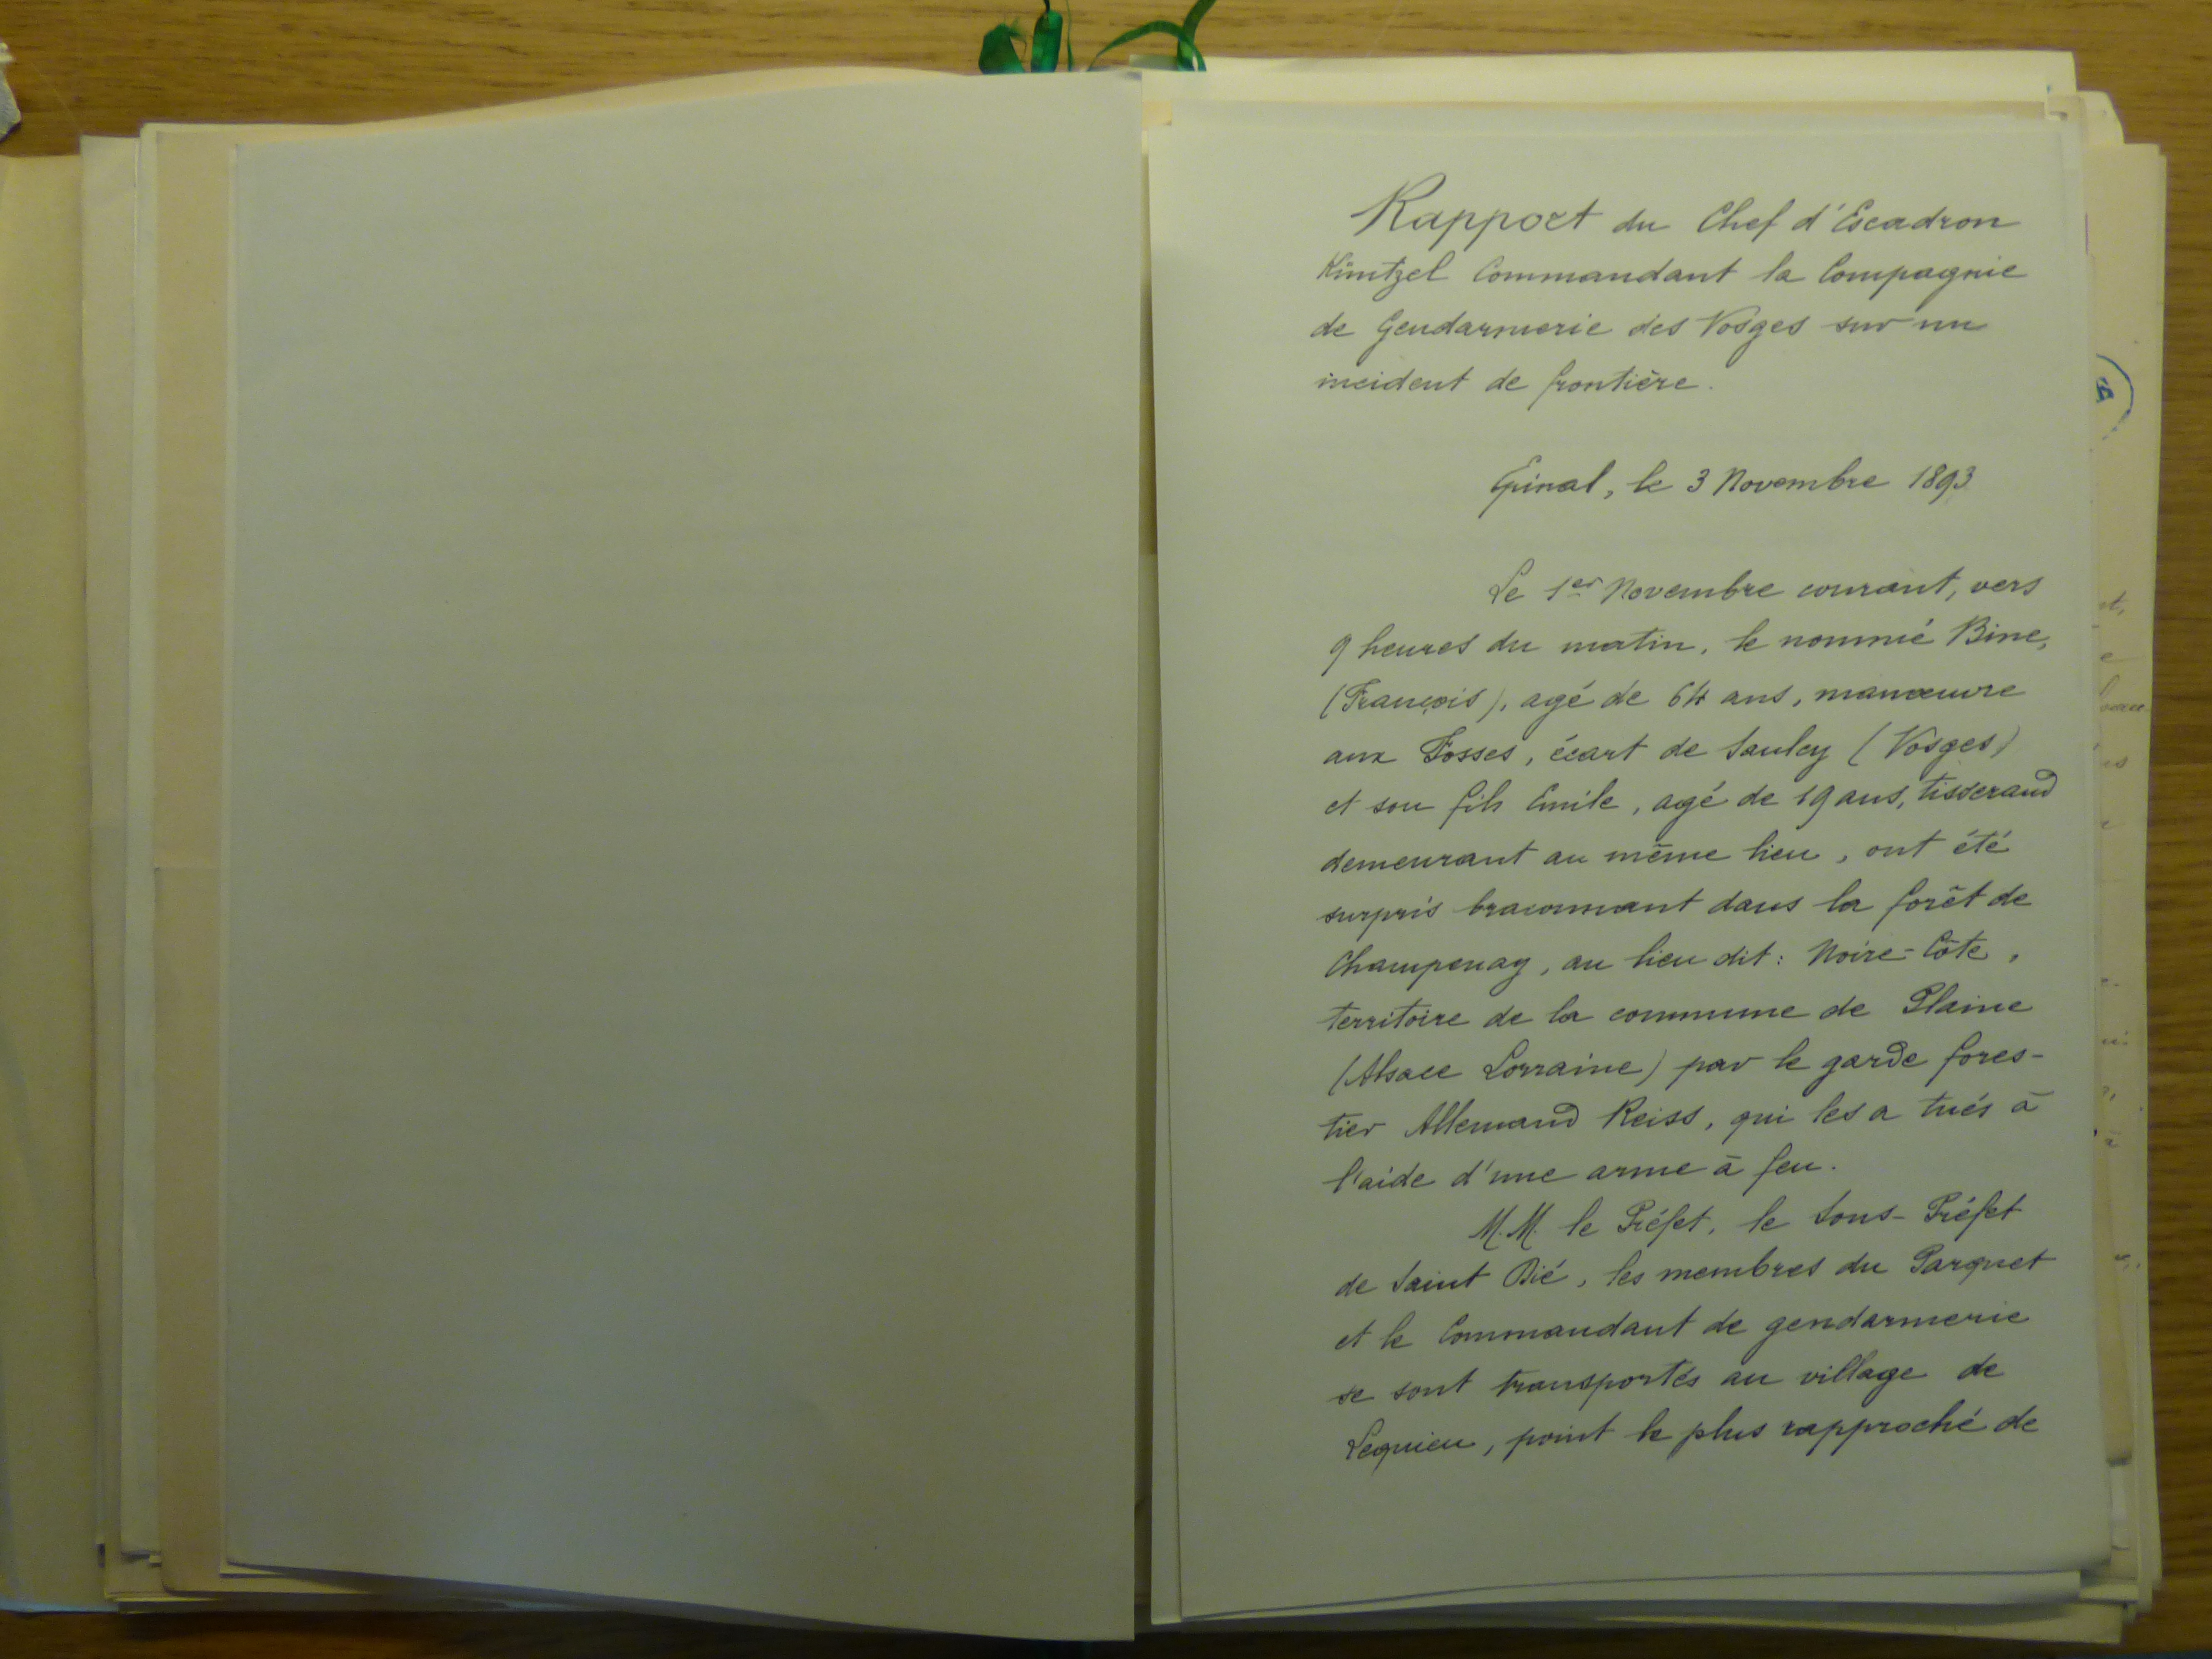 Rapport du Chef d'Escadron
Küntzel Commandant la Compagnie
de Gendarmerie des Vosges sur un
incident de frontière.
Epinal, le 3 Novembre 1893
Le 1er Novembre courant, vers
9 heures du matin, le nommé Bine,
(François), agé de 64 ans, manœuvre
aux Fosses, écart de Saulcy (Vosges)
et son fils Emile, agé de 19 ans, tisserand
demeurant au même lieu, ont été
surpris braconnant dans la forêt de
Champenay, au lieu dit: Noire-Côte,
territoire de la commune de Plaine
(Alsace Lorraine) par le garde fores-
tier Allemand Reiss, qui les a tués à
l'aide d'une arme à feu.
M.M. le Préfet, le Sous-Préfet
de Saint Dié, les membres du Parquet
et le Commandant de gendarmerie
se sont transportés au village de
Lequieu, point le plus rapproché de